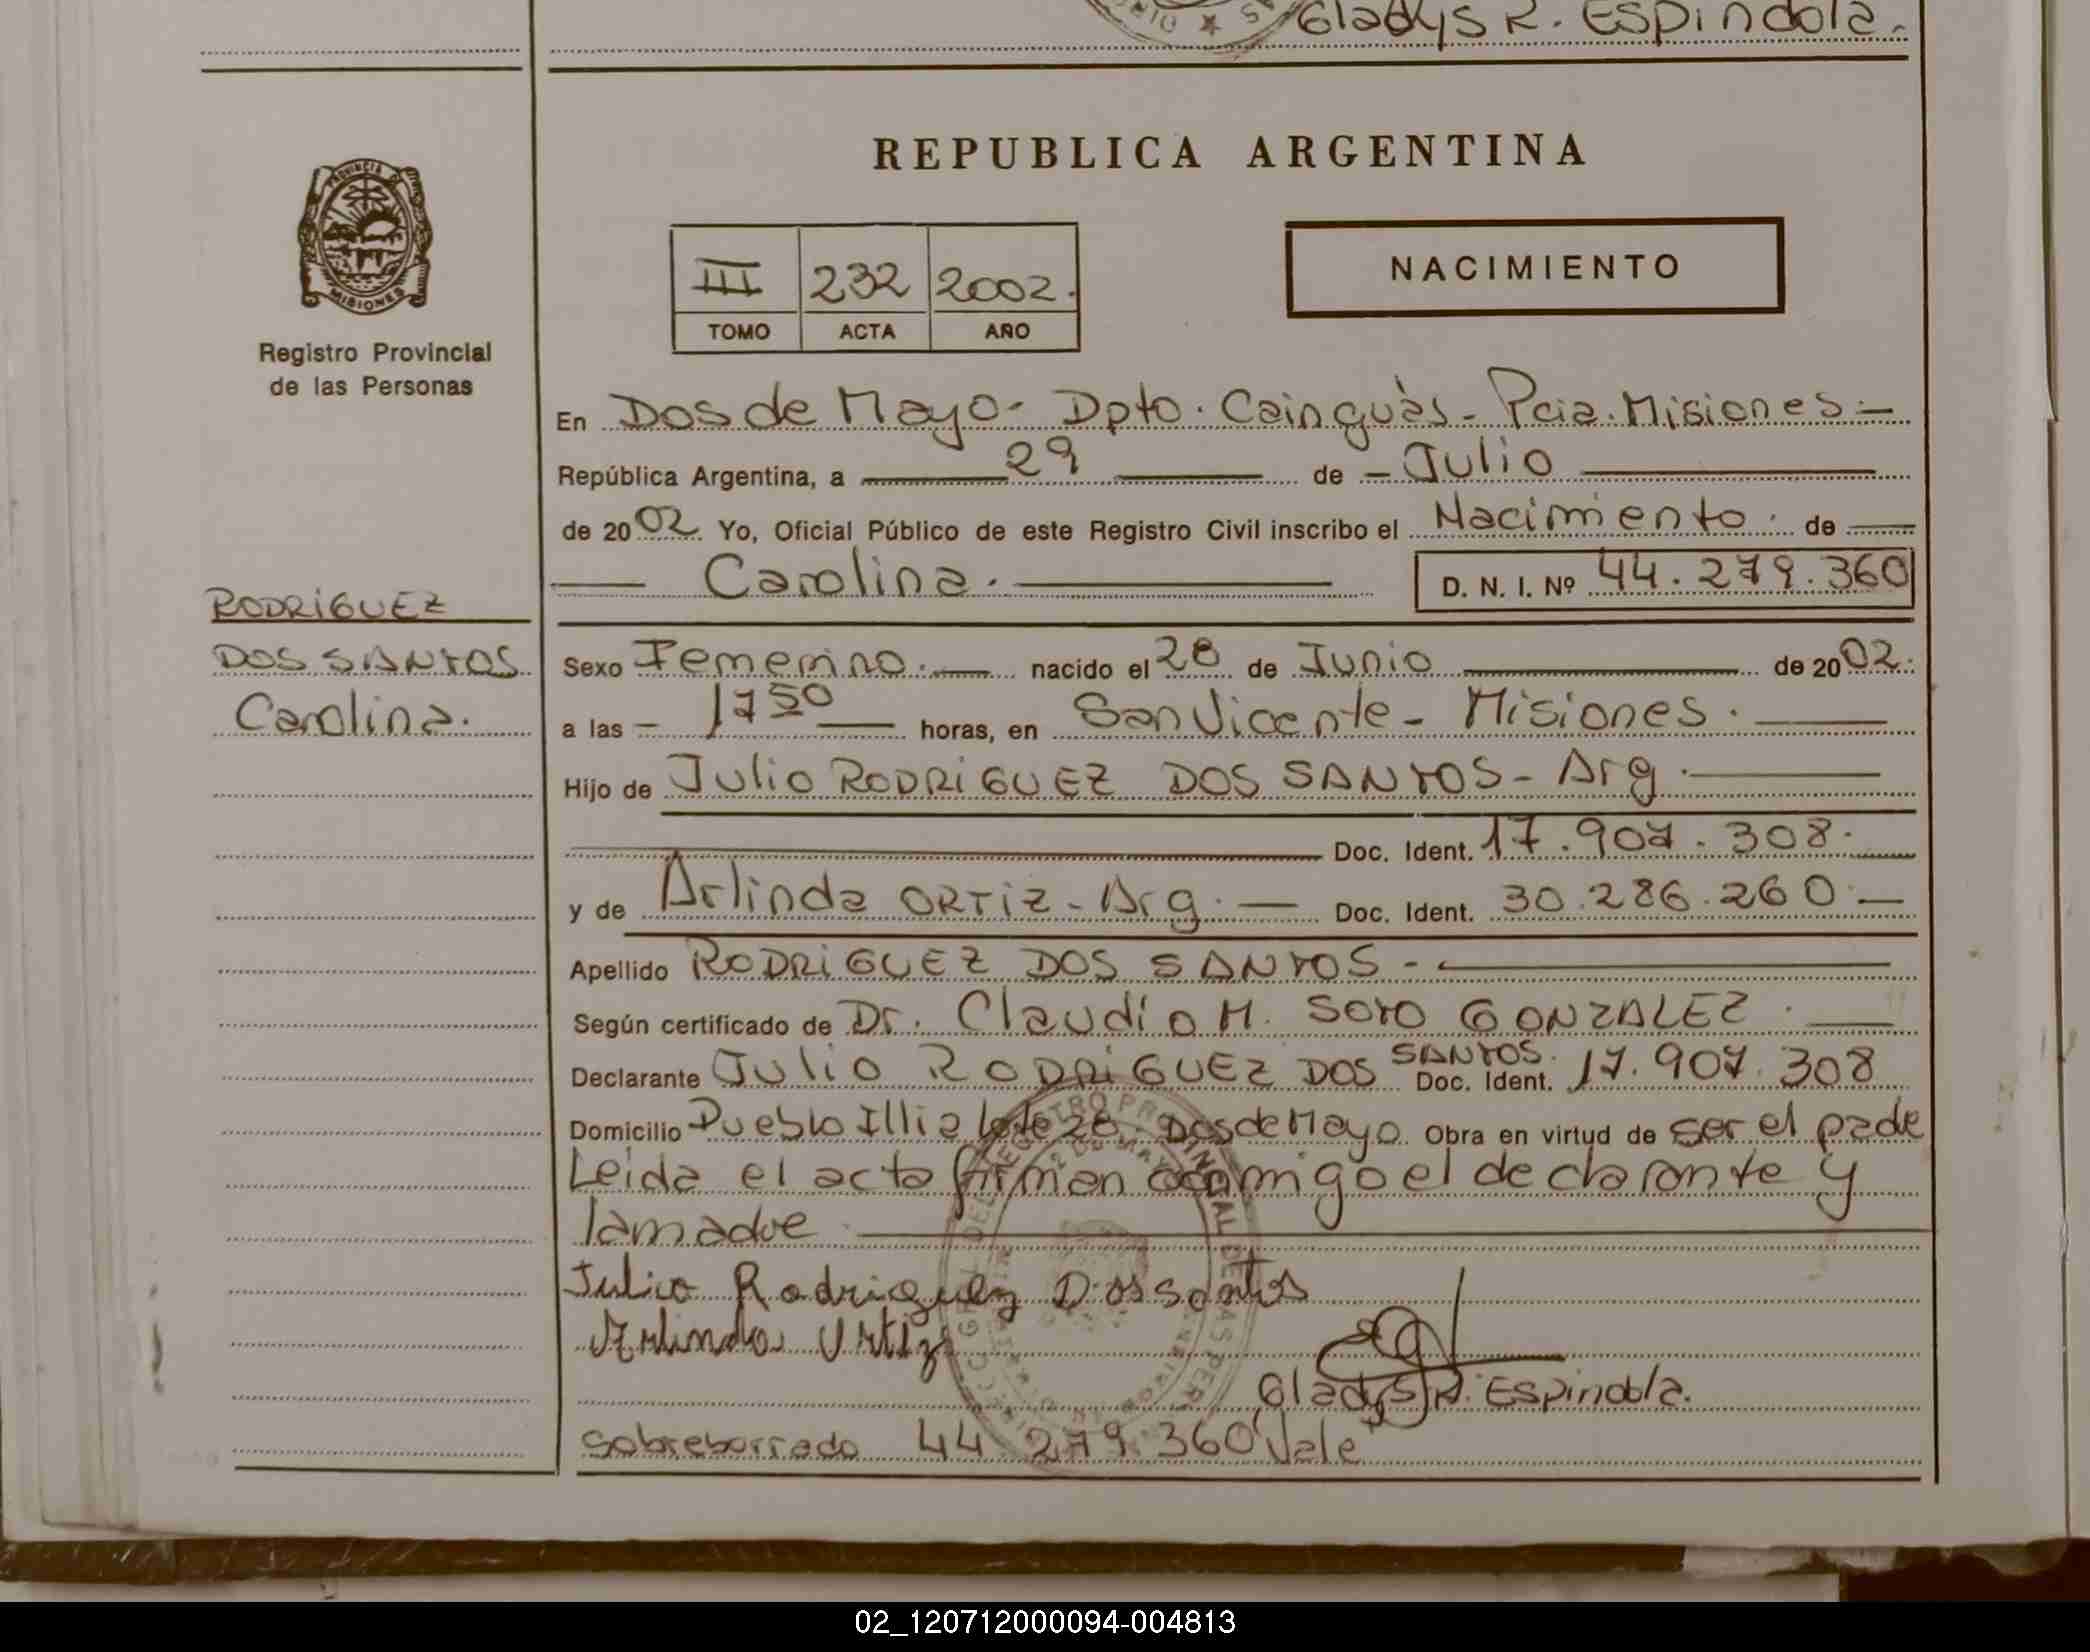 Gladys R. Espindola.
REPUBLICA ARGENTINA
PROVINCIA DE MISIONES
Registro Provincial
de las Personas
III 232 2002.
TOMO ACTA AÑO
NACIMIENTO
En Dos de Mayo - Dpto. Cainguàs - Pcia. Misiones.-
República Argentina, a 29 de - Julio
de 2002 Yo, Oficial Público de este Registro Civil inscribo el Nacimiento. de
Carolina. D. N. I. Nº 44.279.360
RODRIGUEZ
DOS SANTOS
Carolina.
Sexo Femenino. nacido el 28 de Junio de 2002.
a las - 17 50 horas, en San Vicente - Misiones.
Hijo de Julio RODRIGUEZ DOS SANTOS - Arg.
Doc. Ident. 17.907.308.
y de Arlinda ORTIZ - Arg. Doc. Ident. 30.286.260.
Apellido RODRIGUEZ DOS SANTOS -
Según certificado de Dr. Claudio M. SOTO GONZALEZ.
Declarante Julio RODRIGUEZ DOS SANTOS. Doc. Ident. 17.907.308
Domicilio Pueblo Illia lote 28. Dos de Mayo Obra en virtud de ser el padre
Leida el acta firman conmigo el declarante y
la madre
Julio Rodriguez Dos santos
Arlinda Ortiz
Gladys R. Espindola.
Sobreborrado 44.279.360 Vale
02_120712000094-004813